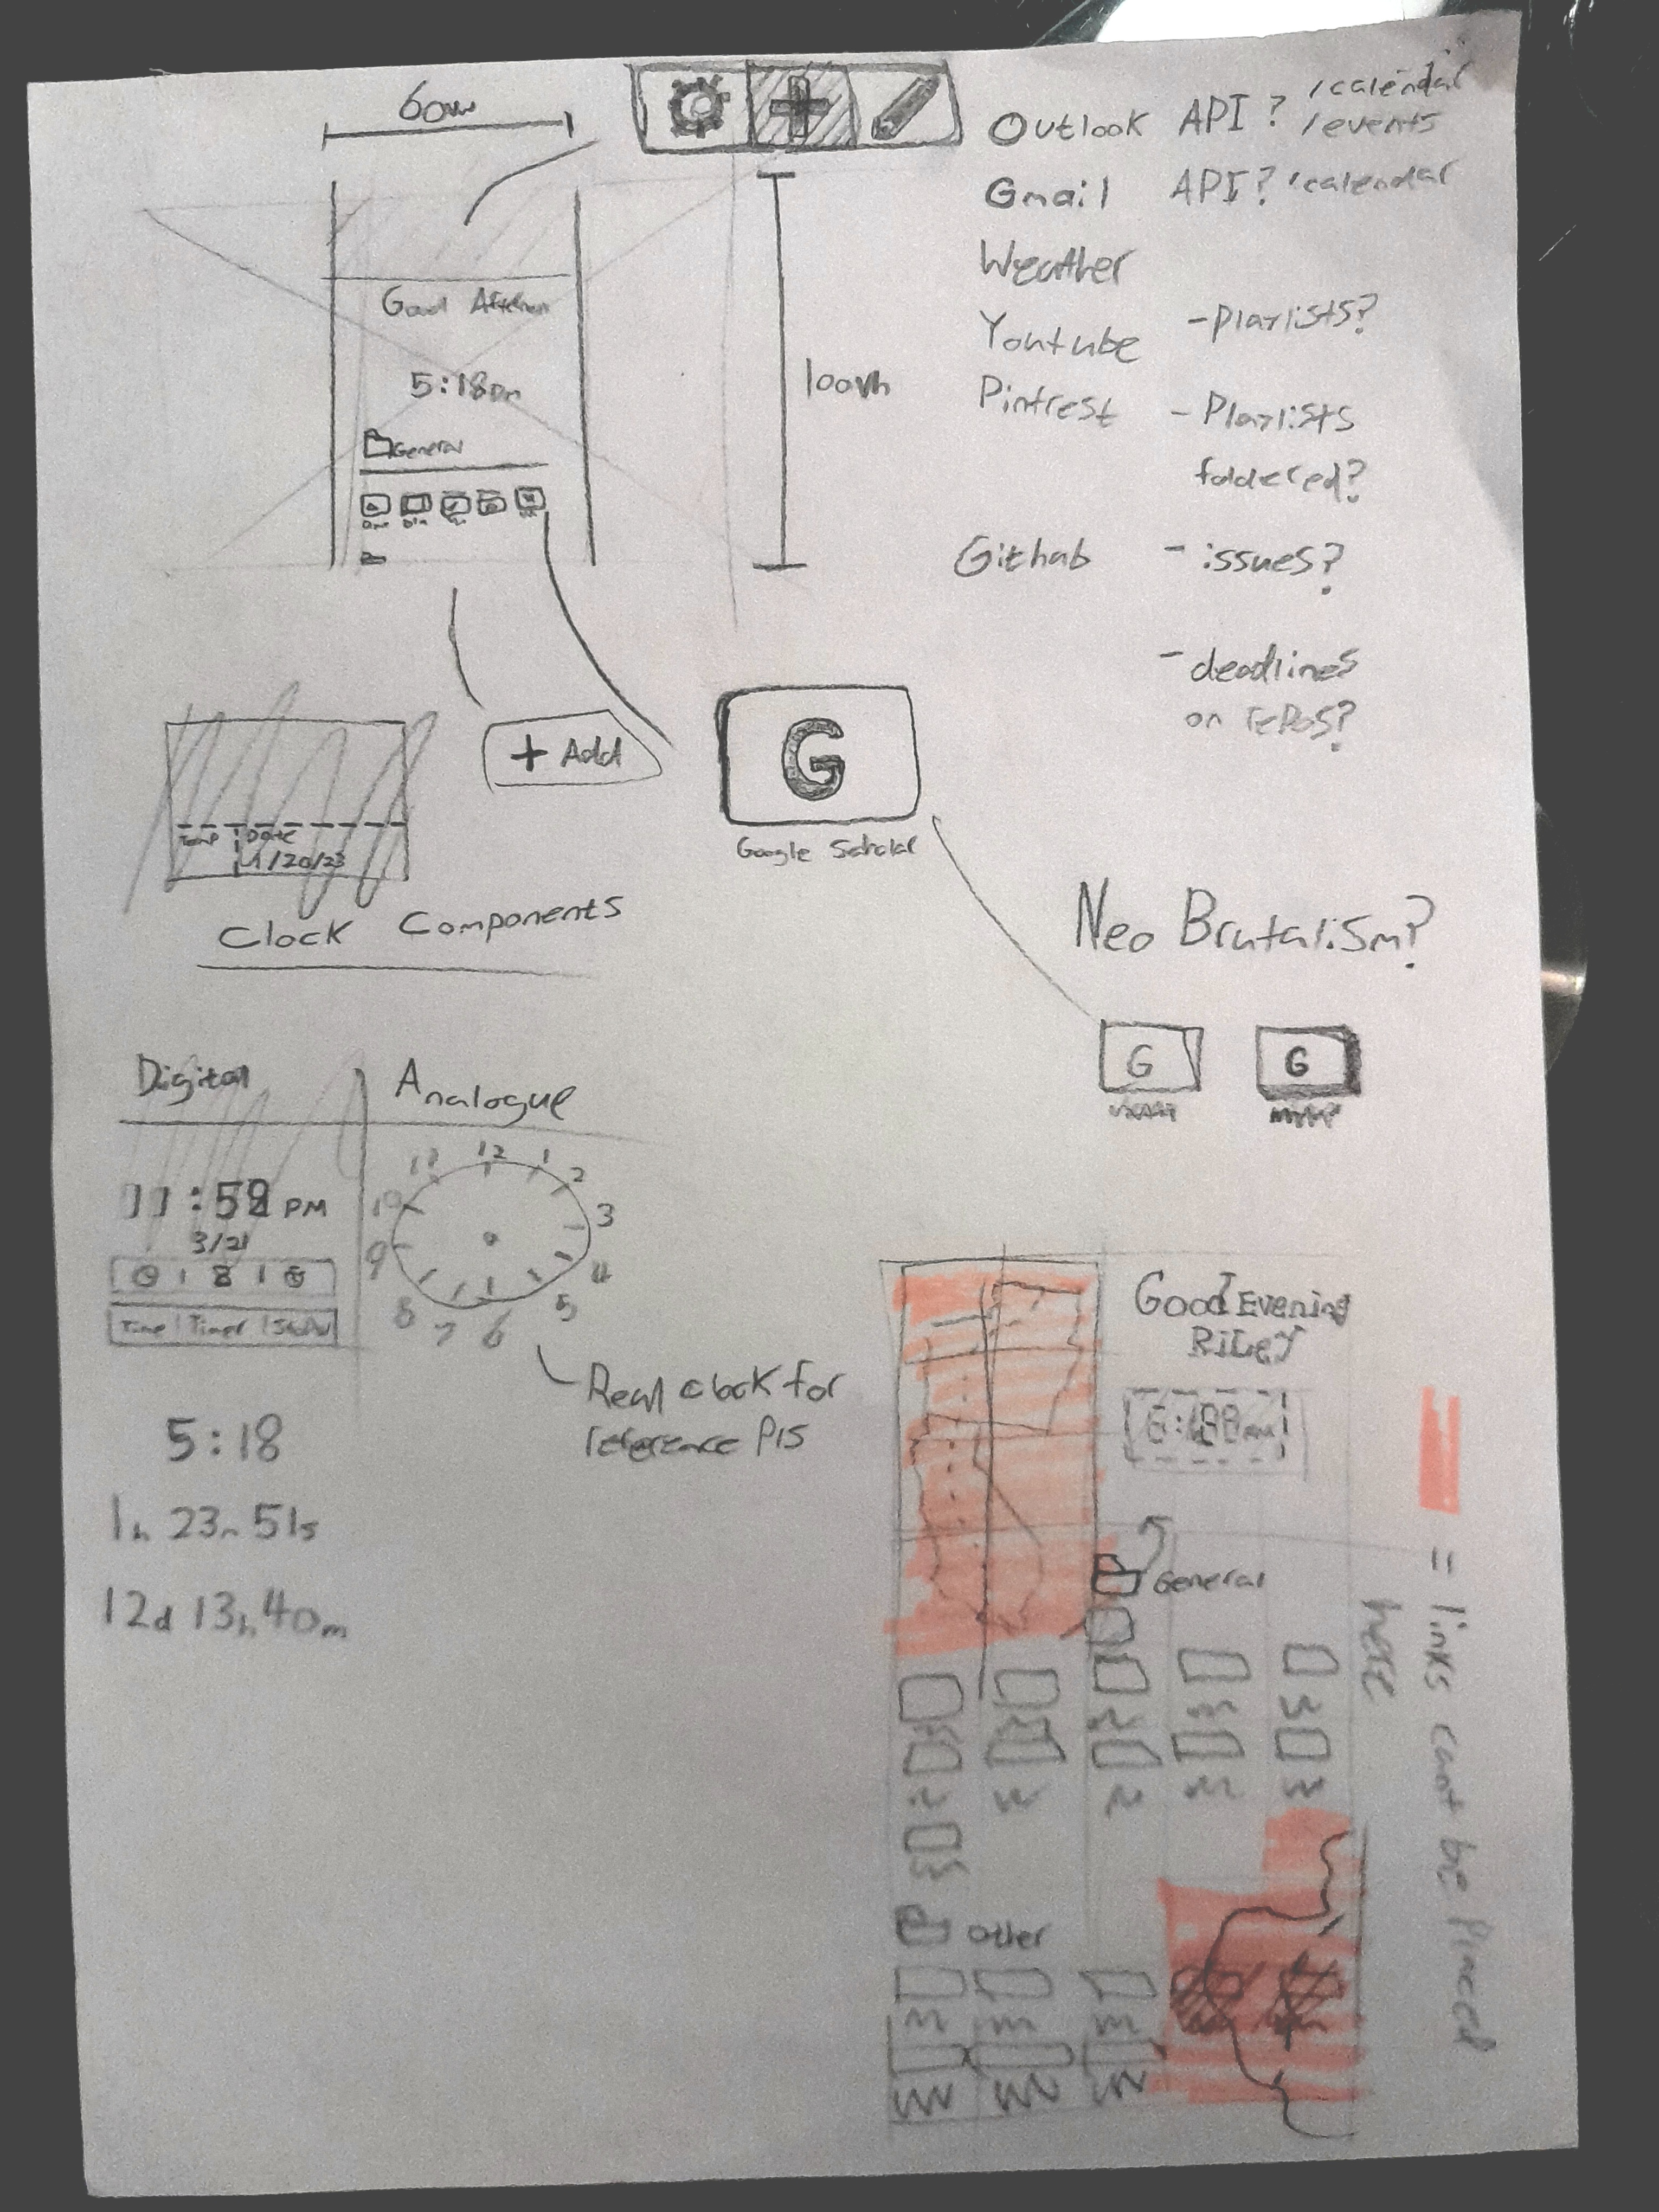 60vw
Outlook API? /calendar
/events
Gmail API? /calendar
Weather
Youtube -Playlists?
Pintrest - Playlists
foldered?
Github - issues?
- deadlines
on repos?
100vh
Good
5:18pm
General
+ Add
G
Google Scholar
Temp
Date
1/20/23
Clock Components
Neo Brutalism?
G
G
Digital
Analogue
11:59 PM
3/21
Time | Timer |
12
1
2
3
4
5
6
7
8
9
10
11
Real clock for
reference pls
5:18
1h 23m 51s
12d 13h 40m
Good Evening
Riley
General
Other
= links cant be placed
here